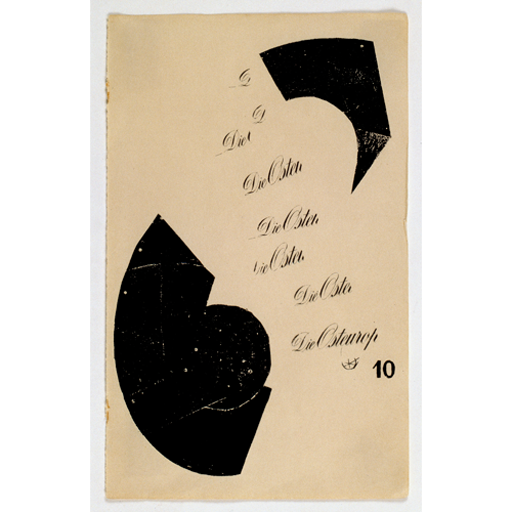 Die
Die Osten
Die Osten
Die Osten
Die Oster
Die Osteurop
10